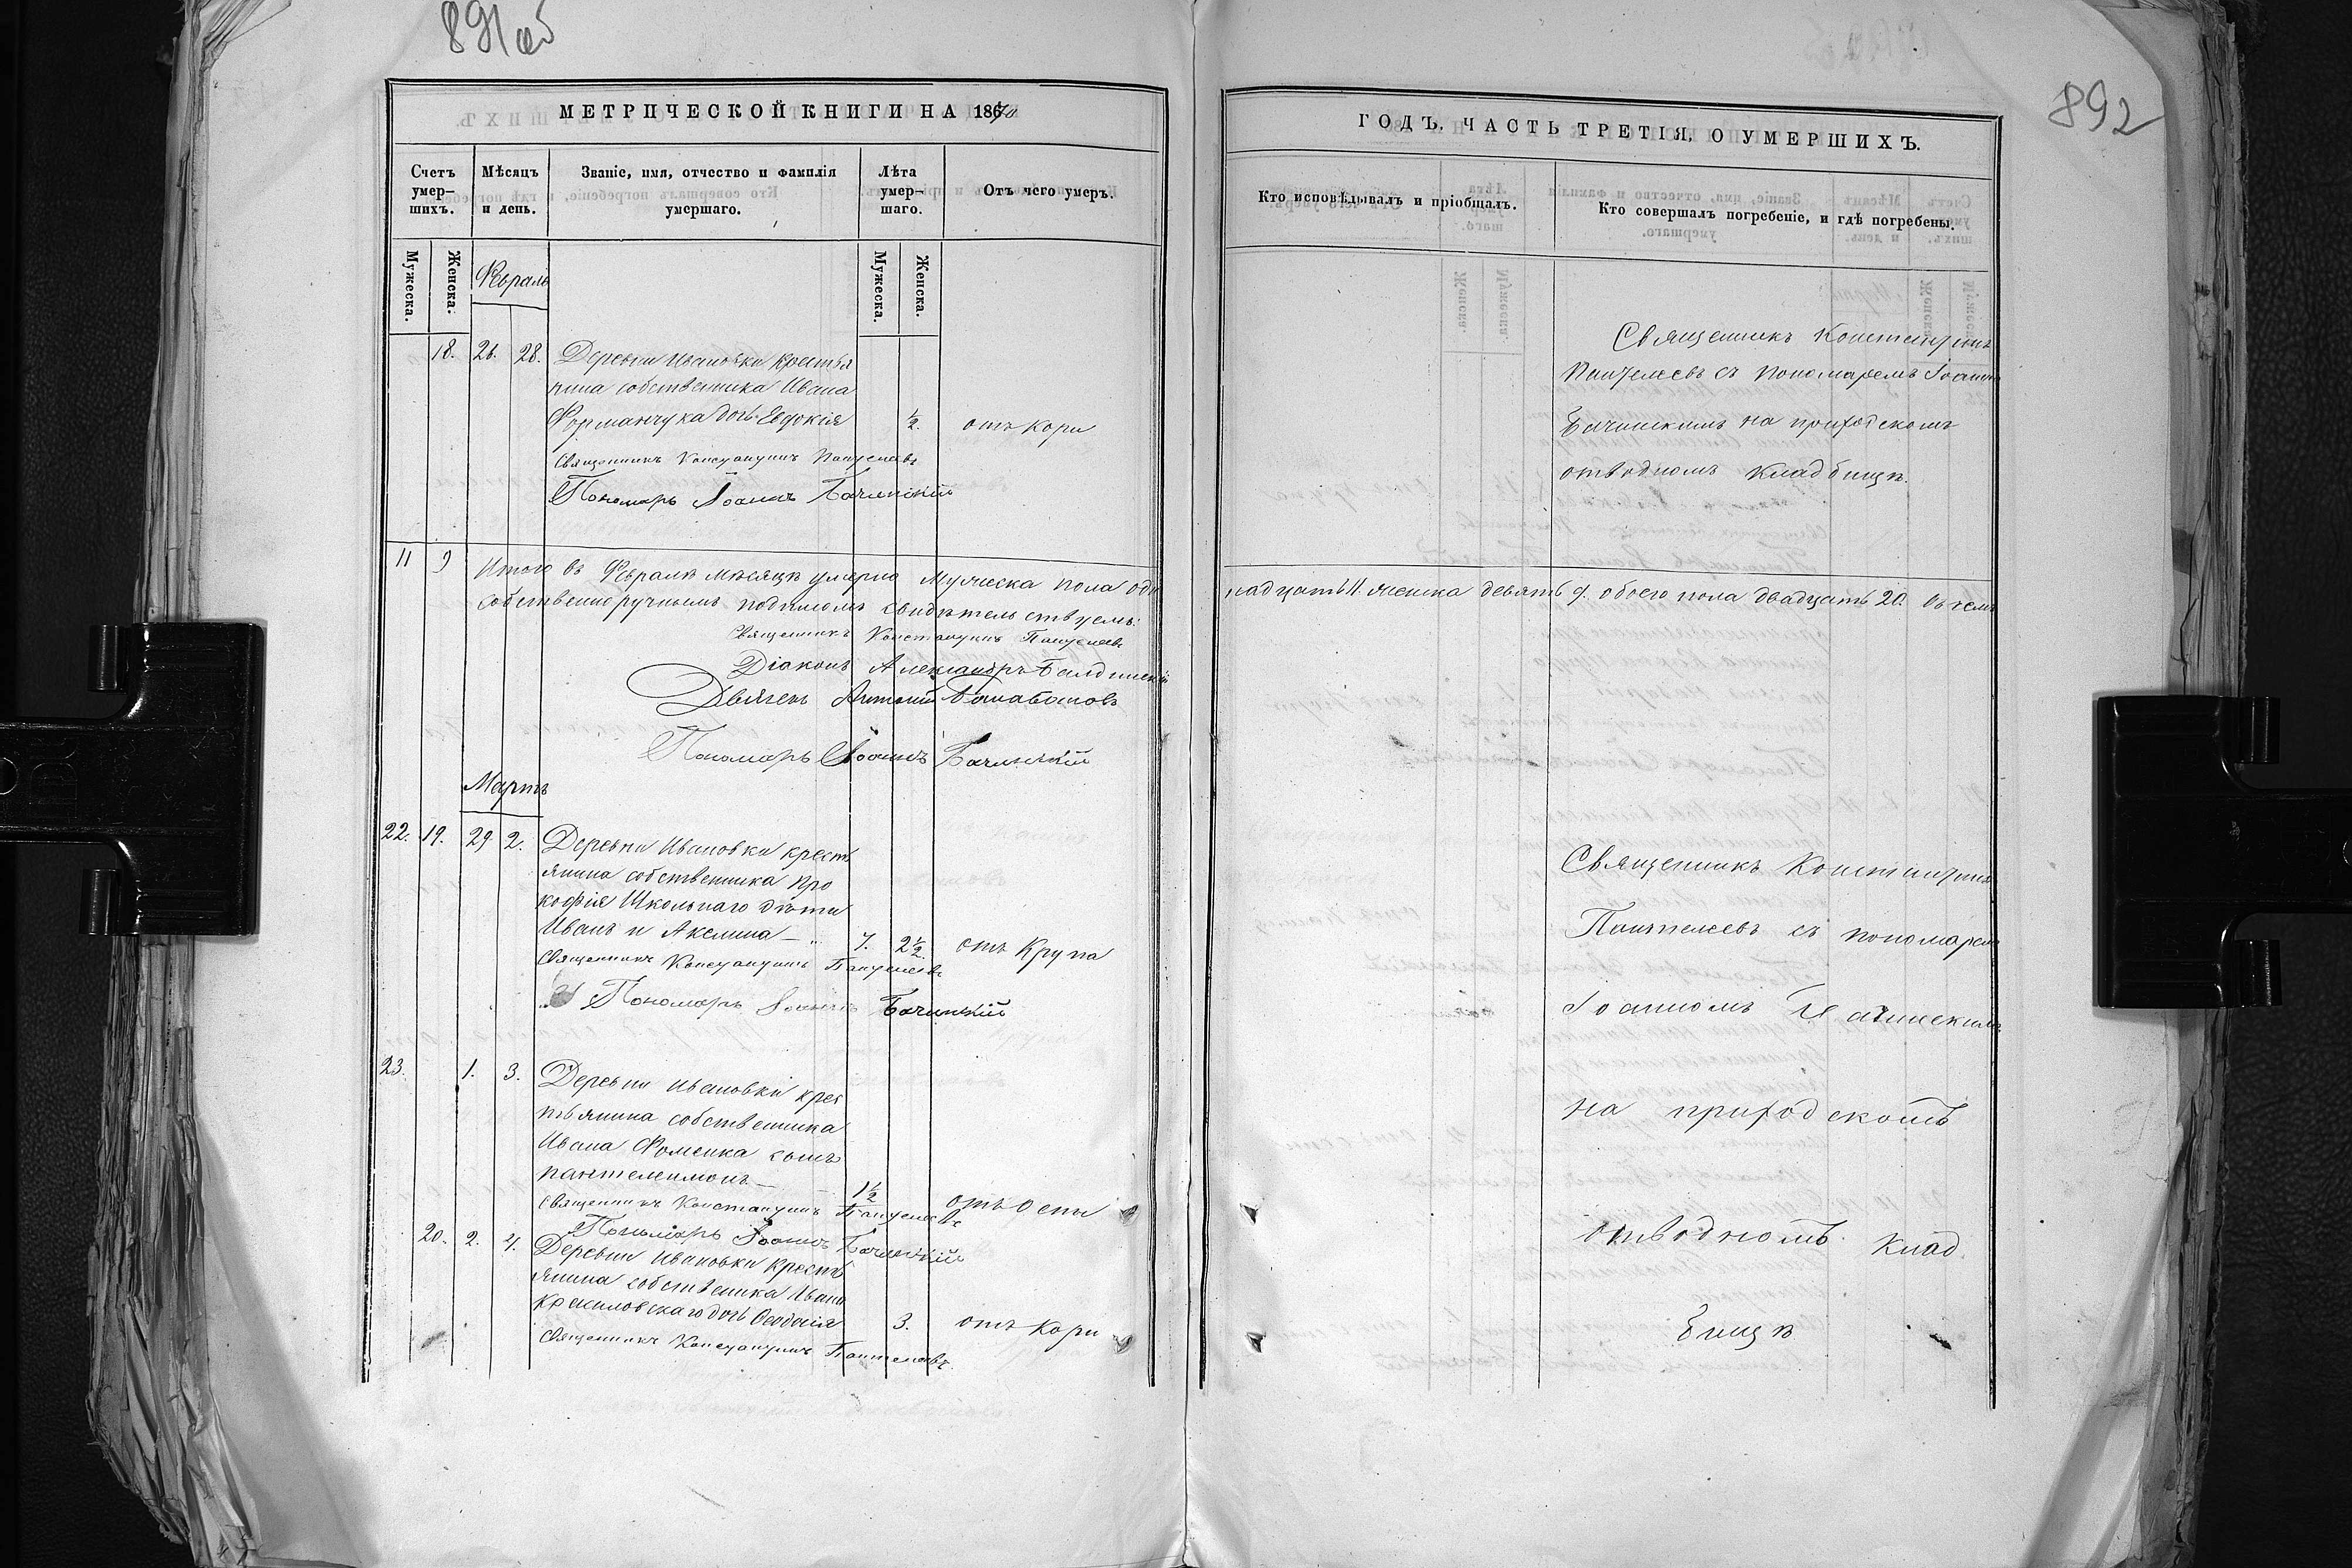 891 об
МЕТРИЧЕСКОЙ КНИГИ НА 1870
Счетъ умер-шихъ.
Мѣсяцъ и день.
Званіе, имя, отчество и фамилія умершаго.
Лѣта умер-шаго.
Отъ чего умеръ.
Мужеска.
Женска.
Февраль
Мужеска.
Женска.
18. 26. 28. Деревни Ивановки крестья
нина собственника Ивана
Форманчука дочь Евдокія ½. отъ кори
Священникъ Константинъ Пантелеевъ
Пономарь Іоаннъ Бачинскій
11 9 Итого въ Февралѣ мѣсяцѣ умерло мужеска пола оди
собственноручнымъ подписомъ свидѣтельствуемъ:
Священникъ Константинъ Пантелеевъ
Діаконъ Александръ
Дьячекъ Антоній
Пономарь Іоаннъ Бачинскій
Мартъ
22. 19. 29 2. Деревни Ивановки крестъ
янина собственника Про
кофія Школьнаго дѣти
Иванъ и Акелина — „ 7. 2½ отъ Крупа
Священникъ Константинъ Пантелеевъ
Пономарь Іоаннъ Бачинскій
23. 1. 3. Деревни Ивановки крес
тьянина собственника
Ивана Фоменка сынъ
Пантелеимонъ — 1½ отъ Оспы
Священникъ Константинъ Пантелеевъ
Пономарь Іоаннъ Бачинскій
20. 2. 4. Деревни Ивановки крестъ
янина собственника Ивана
Красиловскаго дочь Ѳеодосія 3. отъ кори
Священникъ Константинъ Пантелеевъ.
892
ГОДЪ. ЧАСТЬ ТРЕТІЯ, О УМЕРШИХЪ.
Кто исповѣдывалъ и пріобщалъ.
Кто совершалъ погребеніе, и гдѣ погребены.
Священникъ Константинъ
Пантелеевъ съ пономаремъ Іоанном
Бачинскимъ на приходскомъ
отводномъ кладбищѣ.
надцать 11. женска девять 9. обоего пола двадцать 20. въ чемъ
Священникъ Константинъ
Пантелеевъ съ пономарем
Іоанномъ Бачинскимъ
на приходскомъ
отводномъ клад
бищѣ